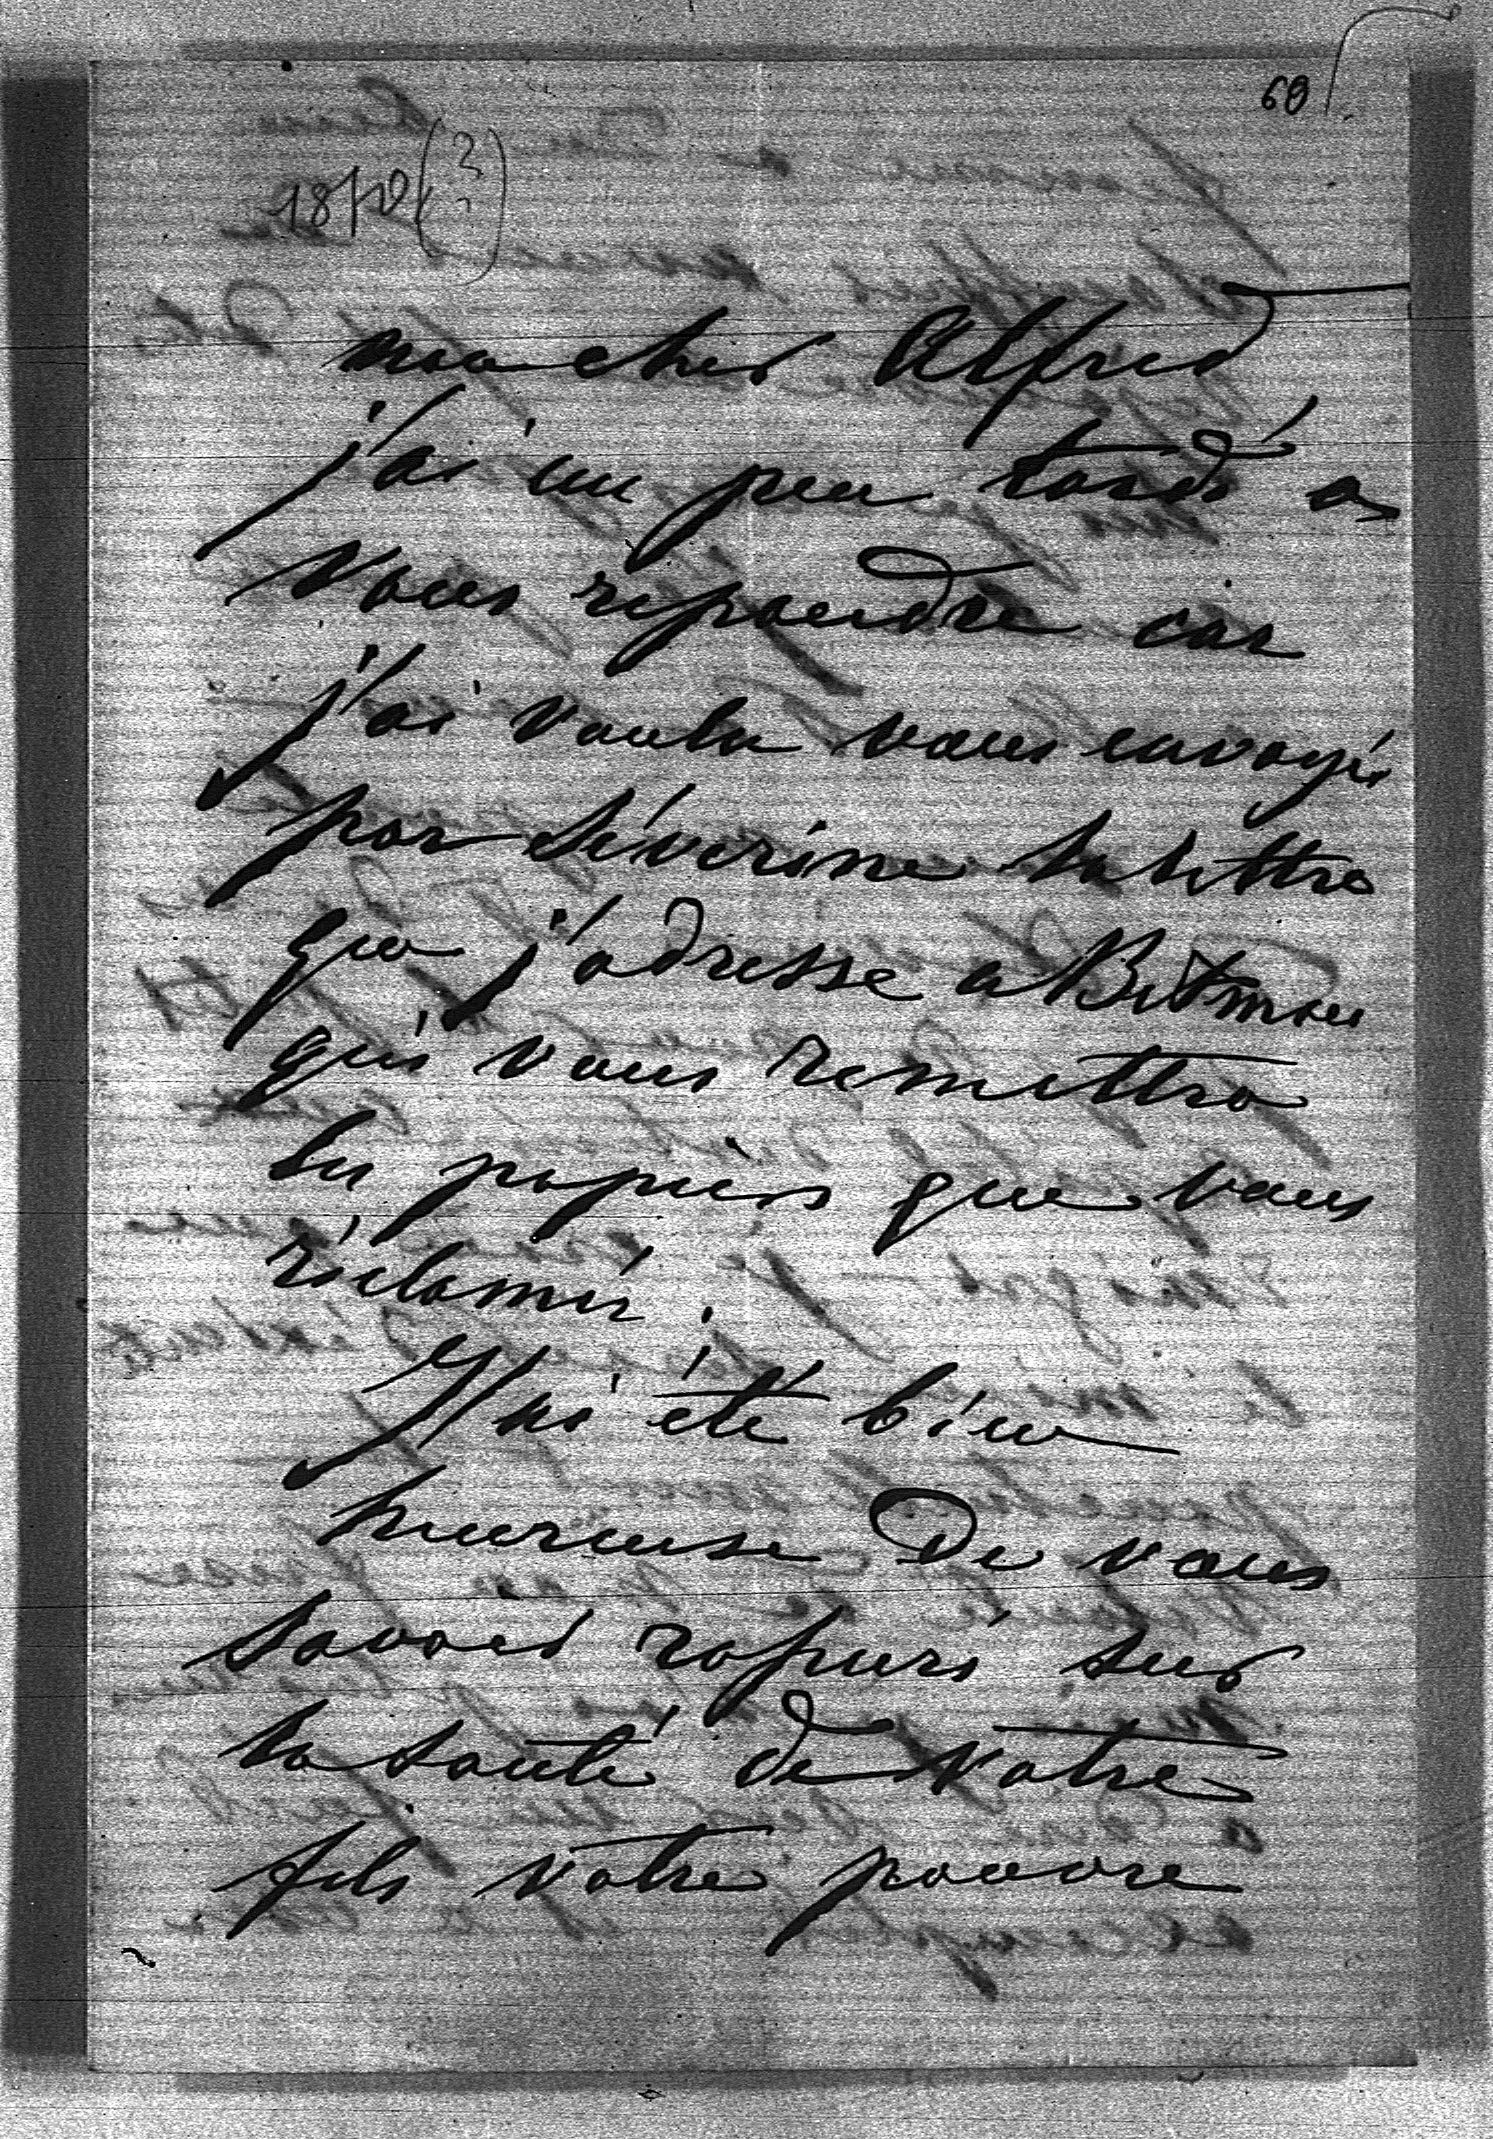 68
1870 (?)
mon cher Alfred
j'ai un peu tardé a
vous repondre car
j'ai voulu vous envoyé
par Séverine la lettre
que j'adresse a
qui vous remettra
les papiers que vous
réclamés.
J'ai été bien
heureuse de vous
savoir rasuré sur
la santé de votre
fils votre pauvre